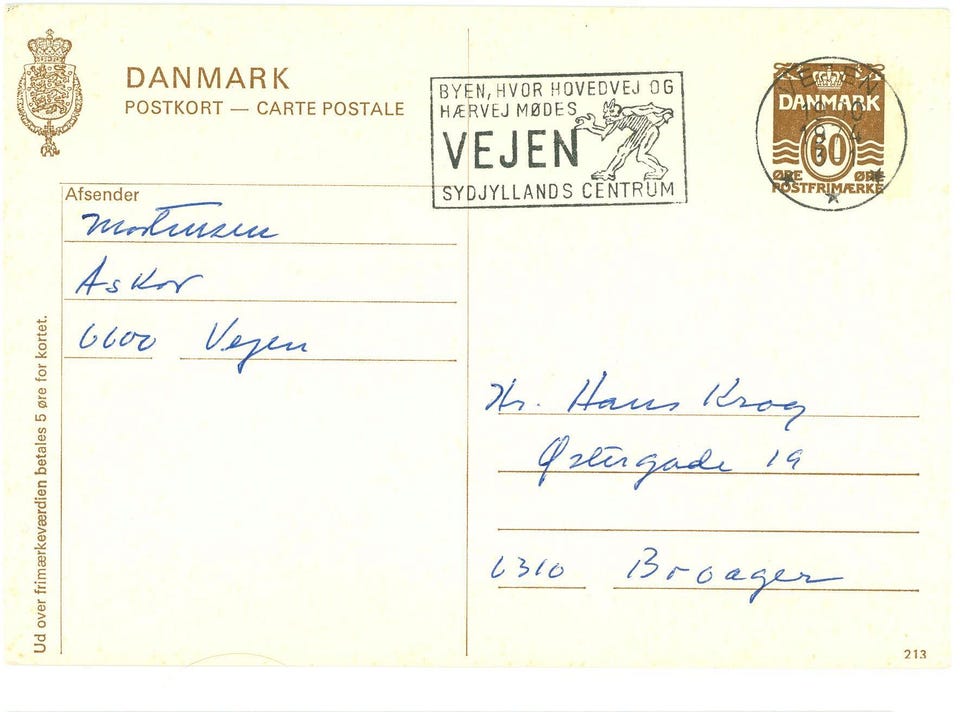 DANMARK
POSTKORT — CARTE POSTALE
BYEN, HVOR HOVEDVEJ OG
HÆRVEJ MØDES
VEJEN
SYDJYLLANDS CENTRUM
VEJEN
DANMARK
60
ØRE ØRE
POSTFRIMÆRKE
Afsender
Mortensen
Askov
6600 Vejen
Ud over frimærkeværdien betales 5 øre for kortet.
Hr. Hans Krog
Østergade 19
6310 Broager
213